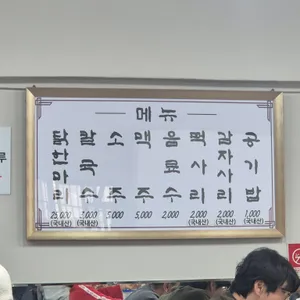 메뉴
닭한마리 25,000 (국내산)
칼국수 3,000 (국내산)
소주 5,000
맥주 5,000
음료수 2,000
떡사리 2,000 (국내산)
감자사리 2,000 (국내산)
공기밥 1,000 (국내산)
루